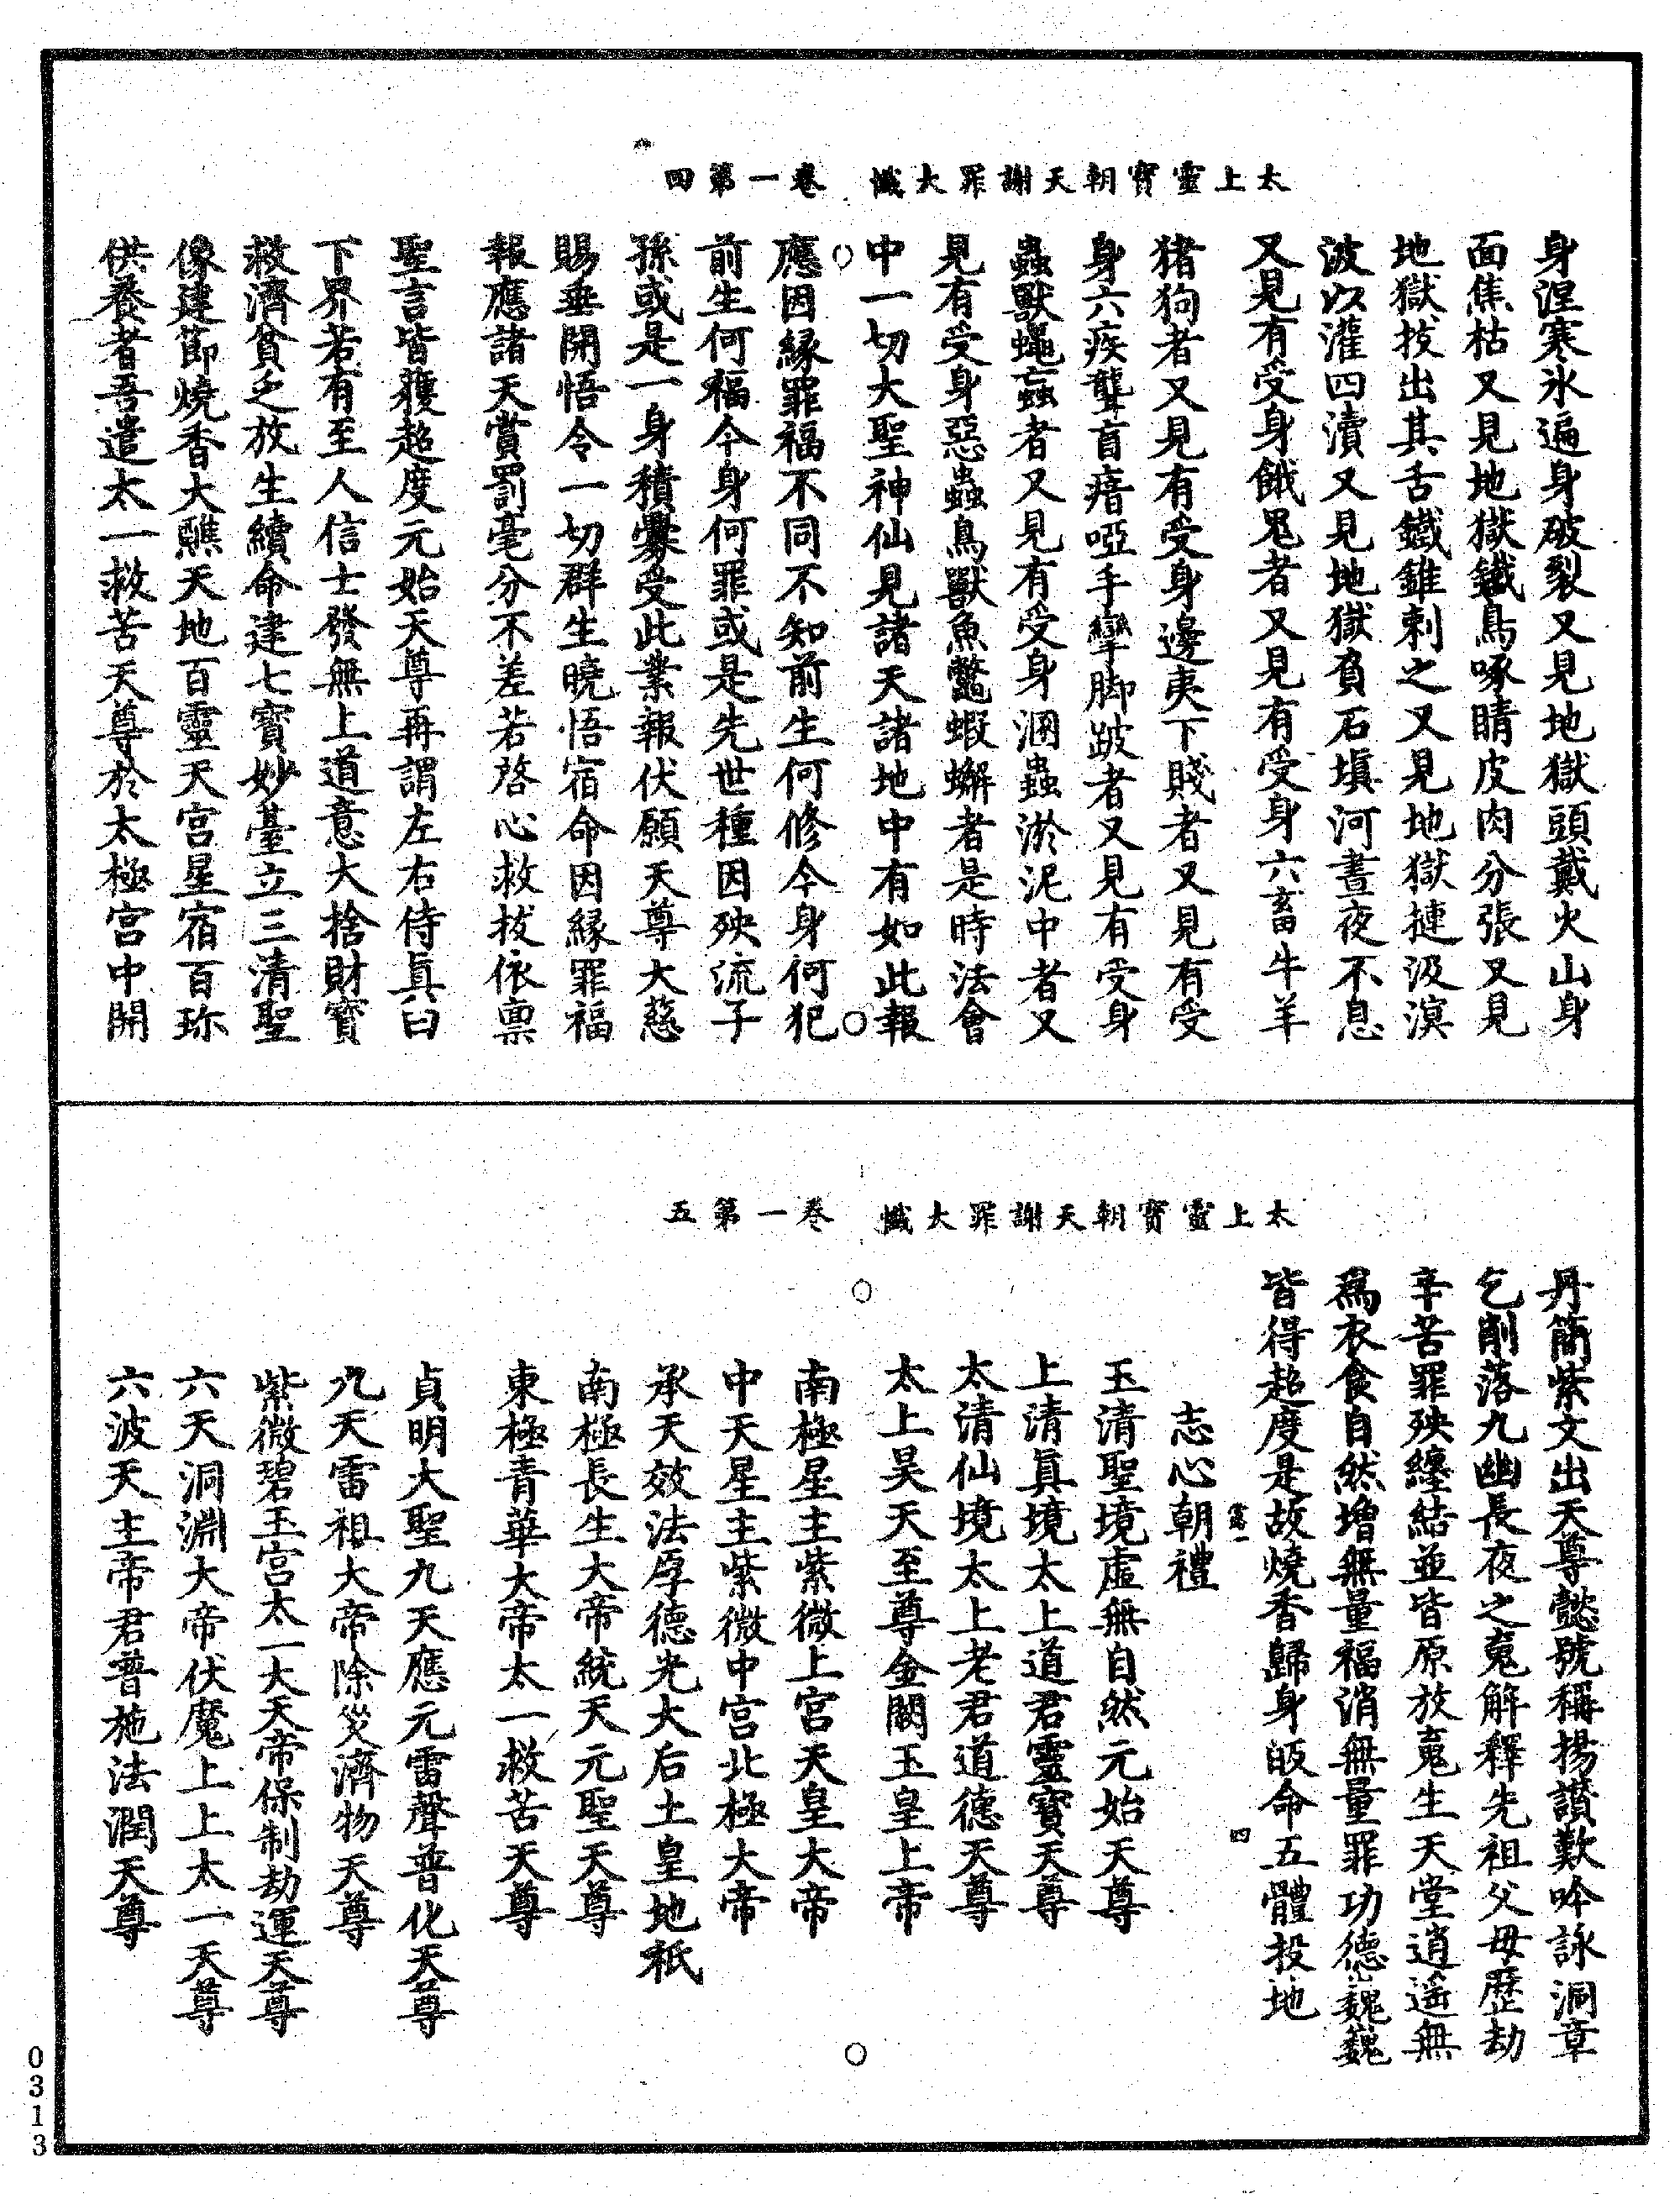 太上靈寶朝天謝罪大懺　卷一第四
身涅寒氷遍身破裂又見地獄頭戴火山身
面焦枯又見地獄鐵鳥啄睛皮肉分張又見
地獄拔出其舌鐵錐刺之又見地獄摙汲溟
波以灌四瀆又見地獄負石塡河晝夜不息
又見有受身餓鬼者又見有受身六畜牛羊
猪狗者又見有受身邊夷下賤者又見有受
身六疾聾盲瘖啞手攣脚跛者又見有受身
蟲獸蠅䖟者又見有受身溷蟲淤泥中者又
見有受身惡蟲鳥獸魚鼈蝦蠏者是時法會
中一切大聖神仙見諸天諸地中有如此報
應因緣罪福不同不知前生何修今身何犯
前生何福今身何罪或是先世種因殃流子
孫或是一身積釁受此業報伏願天尊大慈
賜垂開悟令一切群生曉悟宿命因緣罪福
報應諸天賞罰毫分不差若啓心救拔依禀
聖言皆獲超度元始天尊再謂左右侍眞曰
下界若有至人信士發無上道意大捨財寳
救濟貧乏放生續命建七寳妙臺立三清聖
像建節燒香大醮天地百靈天宫星宿百珎
供養者吾遣太一救苦天尊於太極宫中開
太上靈寶朝天謝罪大懺　卷一第五
丹簡紫文出天尊懿號稱揚讃歎吟詠洞章
乞削落九幽長夜之䰟解釋先祖父母歷劫
辛苦罪殃纏結並皆原放䰟生天堂逍遥無
爲衣食自然增無量福消無量罪功德巍巍
皆得超度是故燒香歸身皈命五體投地
四
志心朝禮
玉清聖境虚無自然元始天尊
上清眞境太上道君靈寶天尊
太清仙境太上老君道德天尊
太上昊天至尊金闕玉皇上帝
南極星主紫微上宫天皇大帝
中天星主紫微中宫北極大帝
承天效法厚德光大后土皇地祇
南極長生大帝統天元聖天尊
東極青華大帝太一救苦天尊
貞明大聖九天應元雷聲普化天尊
九天雷祖大帝除災濟物天尊
紫微碧玉宫太一大天帝保制劫運天尊
六天洞淵大帝伏魔上上太一天尊
六波天主帝君普施法潤天尊
0313